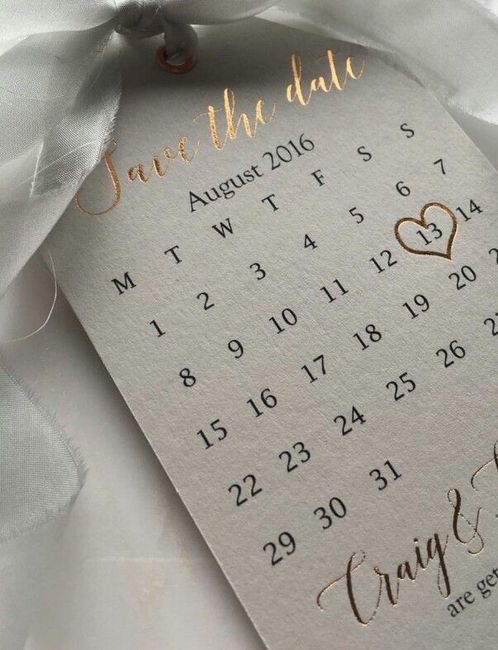 Save the date
August 2016
M T W T F S S
1 2 3 4 5 6 7
8 9 10 11 12 13 14
15 16 17 18 19 20
22 23 24 25 26
29 30 31
Craig &
are